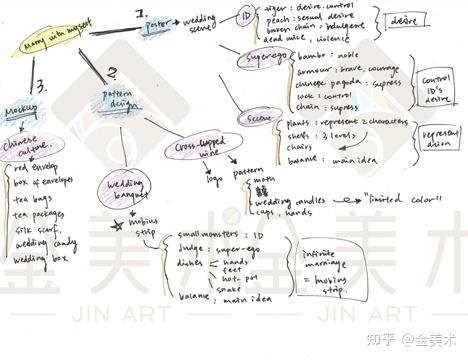 marry with myself
1.
poster
wedding scene
ID
tiger: desire. control
peach: sexual desire
broken chain: indulgence
dead mice, violence
desire
superego
bamboo: noble
armour: brave, courage
chinese pagoda: supress
lock: control
chain: supress
control ID's desire
scene
plants: represent 2 characters
shelfs: 3 levels
chairs
balance: main idea
represent
2.
pattern design
wedding banquet
★ mobius strip
small monsters: ID
judge: super-ego
dishes
hands
feet
hot-pot
snake
balance: main idea
infinite marriage = mobius strip.
cross-cupped wine
logo
pattern
moth
囍
wedding candles
cups, hands
"limited color"
3.
Mockup
Chinese culture
red envelop
box of envelopes
tea bags
tea packages
silk scarf.
wedding candy
wedding box
金美术
JIN ART
金美术
JIN ART
知乎 @金美术